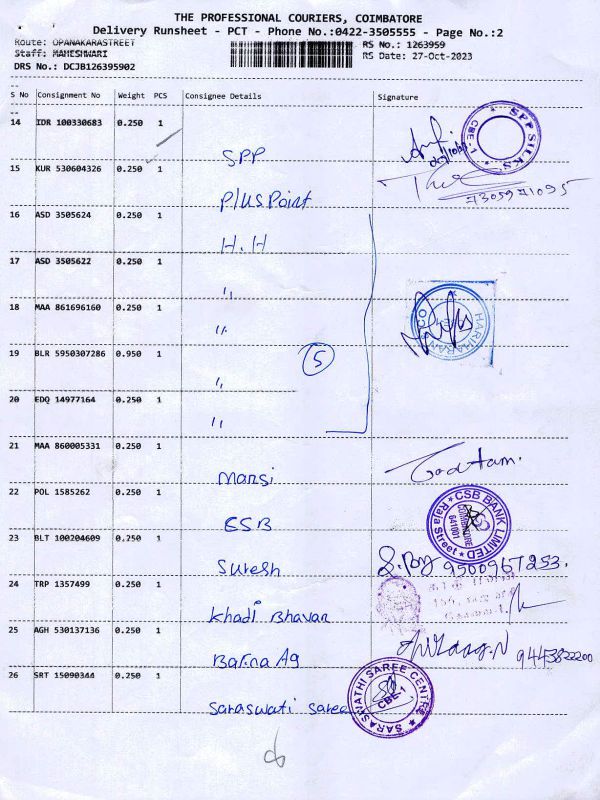 THE PROFESSIONAL COURIERS, COIMBATORE
Delivery Runsheet - PCT - Phone No.:0422-3505555 - Page No.:2
Route: OPANAKARASTREET RS No.: 1263959
Staff: MAHESHWARI RS Date: 27-Oct-2023
DRS No.: DCJB126395902
S No Consignment No Weight PCS Consignee Details Signature
14 IDR 100330683 0.250 1 SPP
SPP SILKS CBE-1
15 KUR 530604326 0.250 1 Plus Point
7305971095
16 ASD 3505624 0.250 1 H.H
17 ASD 3505622 0.250 1 "
18 MAA 861696160 0.250 1 "
HARIHARAN
19 BLR 5950307286 0.950 1 "
5
20 EDQ 14977164 0.250 1 "
21 MAA 860005331 0.250 1 Mansi
22 POL 1585262 0.250 1 ESB
CSB BANK LIMITED Raja Street COIMBATORE 641001
23 BLT 100204609 0.250 1 Suresh
9500967253.
24 TRP 1357499 0.250 1 Khadi Bhavan
25 AGH 530137136 0.250 1 Barna Ag
9443822200
26 SRT 15090344 0.250 1 Saraswati Saree
SARASWATHI SAREE CENTRE CBE-1